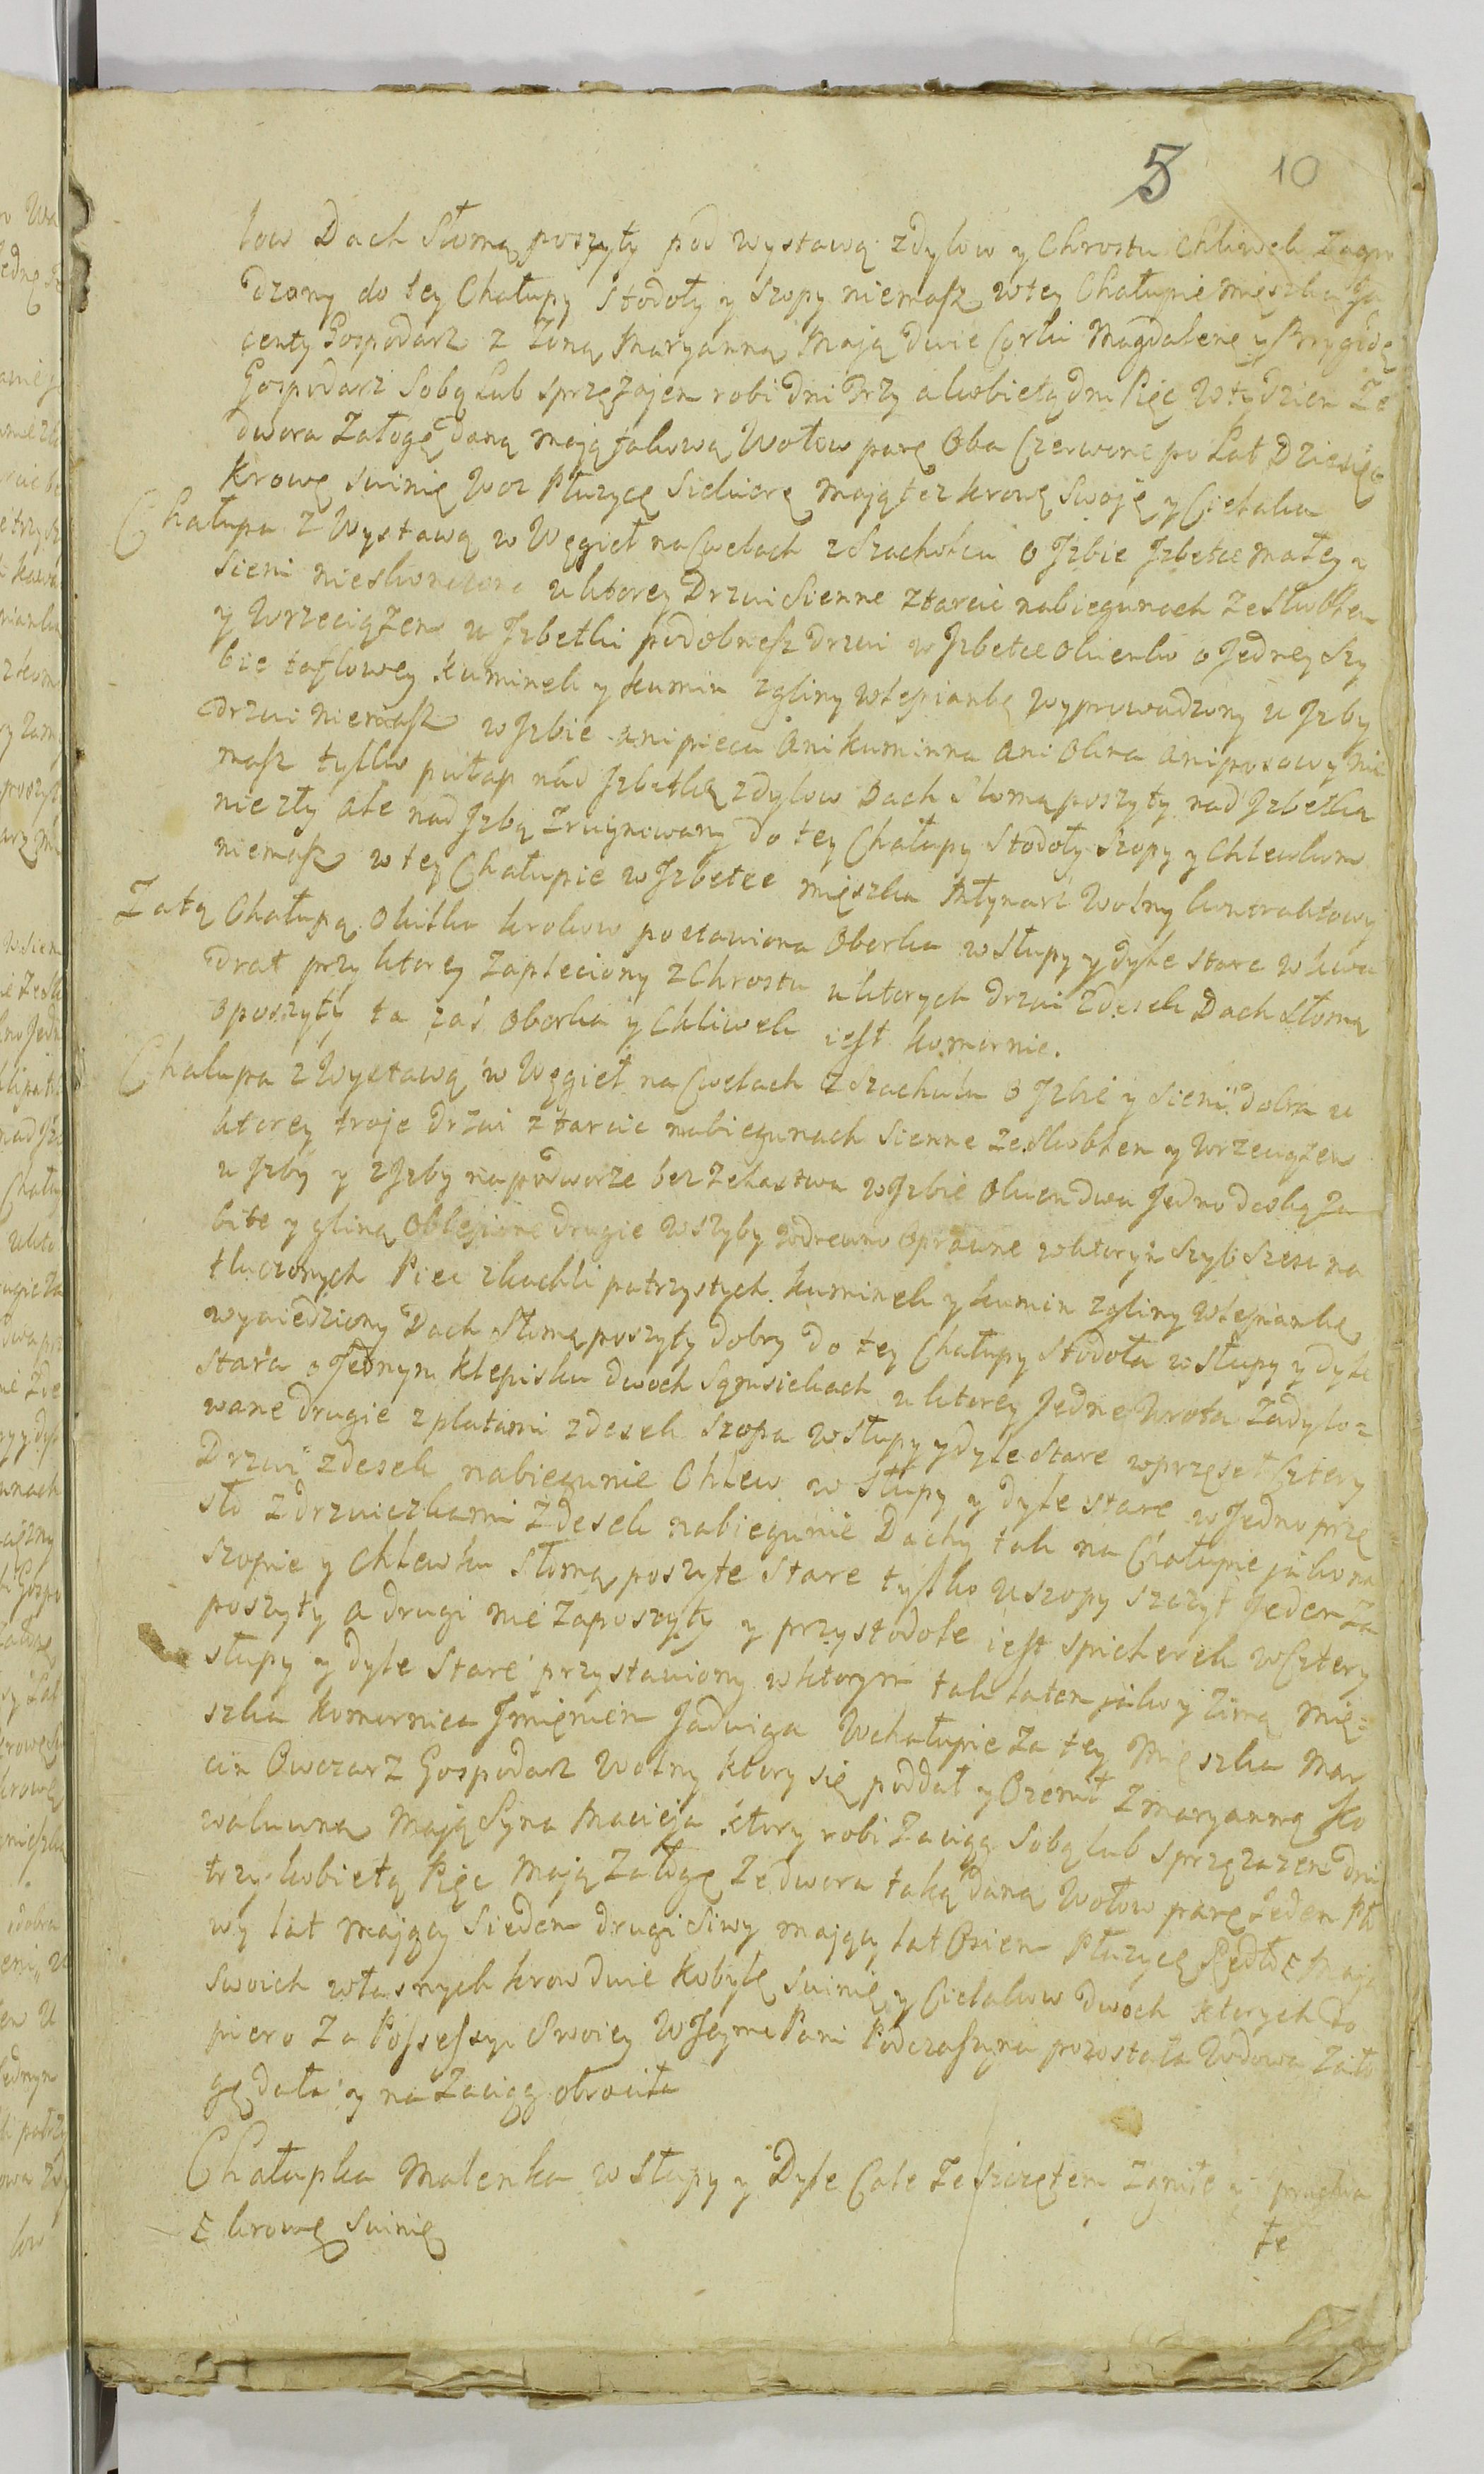 5 10
low Dach Słomą poszyty pod wystawą z dylow y Chrostu Chliwek Zagro
dzony do tey Chałupy Stodoły y Szopy niemasz w tey Chałupie mięszka Ja
centy Gospodarz z Zoną Maryanną Mają dwie Corki Magdalenę y Brygidę
Gospodarz Sobą Lub sprzężajem robi Dni Trzy a kobietą dni Pięc w tydzien Ze
dwora Załogę daną mają jakową Wołow parę Oba Czerwone po Lat Dziesięc
Krowę Swinię Woz Płużycę Siekierę mają tez krowę Swoję y Cielaka
Chałupa z Wystawą w Węgieł na Cwelach z Szachulcu o Jzbie Jzbetce małey y
Sieni niesko u ktorey Drzwi Sienne z tarcic na biegunach ze Skoblem
y Wrzeciązem u Jzbetki podobnesz drzwi w Jzbetce Okienko o Jedney Szy
bie taflowey kuminek y kumin z gliny w lepiankę wyprowadzony u Jzby
drzwi niemasz w Jzbie ani pieca ani kuminna ani Okna ani posowy nie
masz tylko pułap nád Jzbetką z dylow Dach Słomą poszyty nad Jzbetką
nie zły ale nad Jzbą zrujnowany do tey Chałupy Stodoły Szopy y Chlewkow
niemasz w tey Chałupie w Jzbetce mięszka Młynarz Wolny kontraktowy
Za tą Chałupą o kilka krokow postawiona Oborka w Słupy y dyle stare w kwa
drat przy ktorey zapleciony z Chrostu u ktorych drzwi z desek Dach Słomą
o poszyty ta zaś Oborka y Chliwek iest komornic.
Chałupa z Wystawą w Węgieł na Cwelach z Szachulcu o Jzbie y Sieni dobra u
ktorey troje drzwi z tarcic na biegunach Sienne ze Skoblem y Wrzeciązem
u Jzby y z Jzby na podworze bez zelastwa w Jzbie Okien dwa Jedno deską za
bite y gliną Oblepione drugie w szyby w drewno oprawne w ktorym Szyb Szesc na
tłuczonych Piec z kachli patrzystych kuminek y kumin z gliny w lepiankę
wywiedziony Dach Słomą poszyty dobry do tey Chałupy Stodoła w Słupy y dyle
stara o Jednym klepisku dwoch Sąmsiekach u ktorey Jedne Wrota zadylo=
wane drugie z płutami z desek Szopa w Słupy y dyle Stare w przęseł Cztery
Drzwi z desek na biegunie Chlew w Słupy y dyle stare w Jedno przę
sło z drzwiczkami z desek na biegunie Dachy tak na Chałupie jako na
szopie y Chlewku Słomą poszyte Stare tylko u szopy szczyt Jeden za
poszyty a drugi nie zaposzyty y przy stodole iest Spicherek w Cztery
słupy y dyle Stare przystawiony w ktorym tak latem jako y zimą mię=
szka komornica Jmieniem Jadwiga W chałupie za tey mięszka Mar
cin Owczarz Gospodarz Wolny ktory się poddał y Ozenił z Maryanną Ko
walowną Mają Syna Macieja ktory robi Zaciąg Sobą lub Sprzęzazem Dni
trzy kobietą Pięc Mają Załogę ze dwora taką daną Wołow parę Jeden Pło
wy lat mający Siedem drugi Siwy mający lat Osiem Płuzycę Radło Ɛ Mają
Swoich własnych krow dwie kobyłę Swinię y Cielakow dwoch ktorych do
piero za Possessyi Swoiey W Jeymc Pani Podczaszyna pozostała Wdowa Zało
gę dała y na Zaciąg obrociła
Chałupka Malenka w Słupy y Dyle Całe ze szczętem zgniłe y
te
Ɛ krowę Swinię